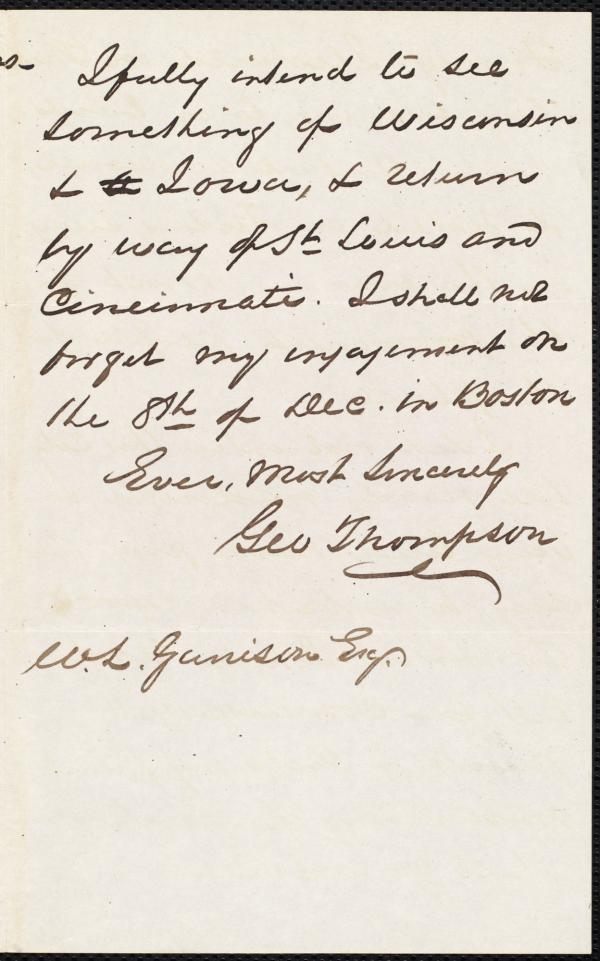 I fully intend to see
something of Wisconsin
& Iowa, & return
by way of St Louis and
Cincinnati. I shall not
forget my engagement on
the 8th of Dec. in Boston
Ever, Most Sincerely
Geo Thompson
W. L. Garrison Esq.